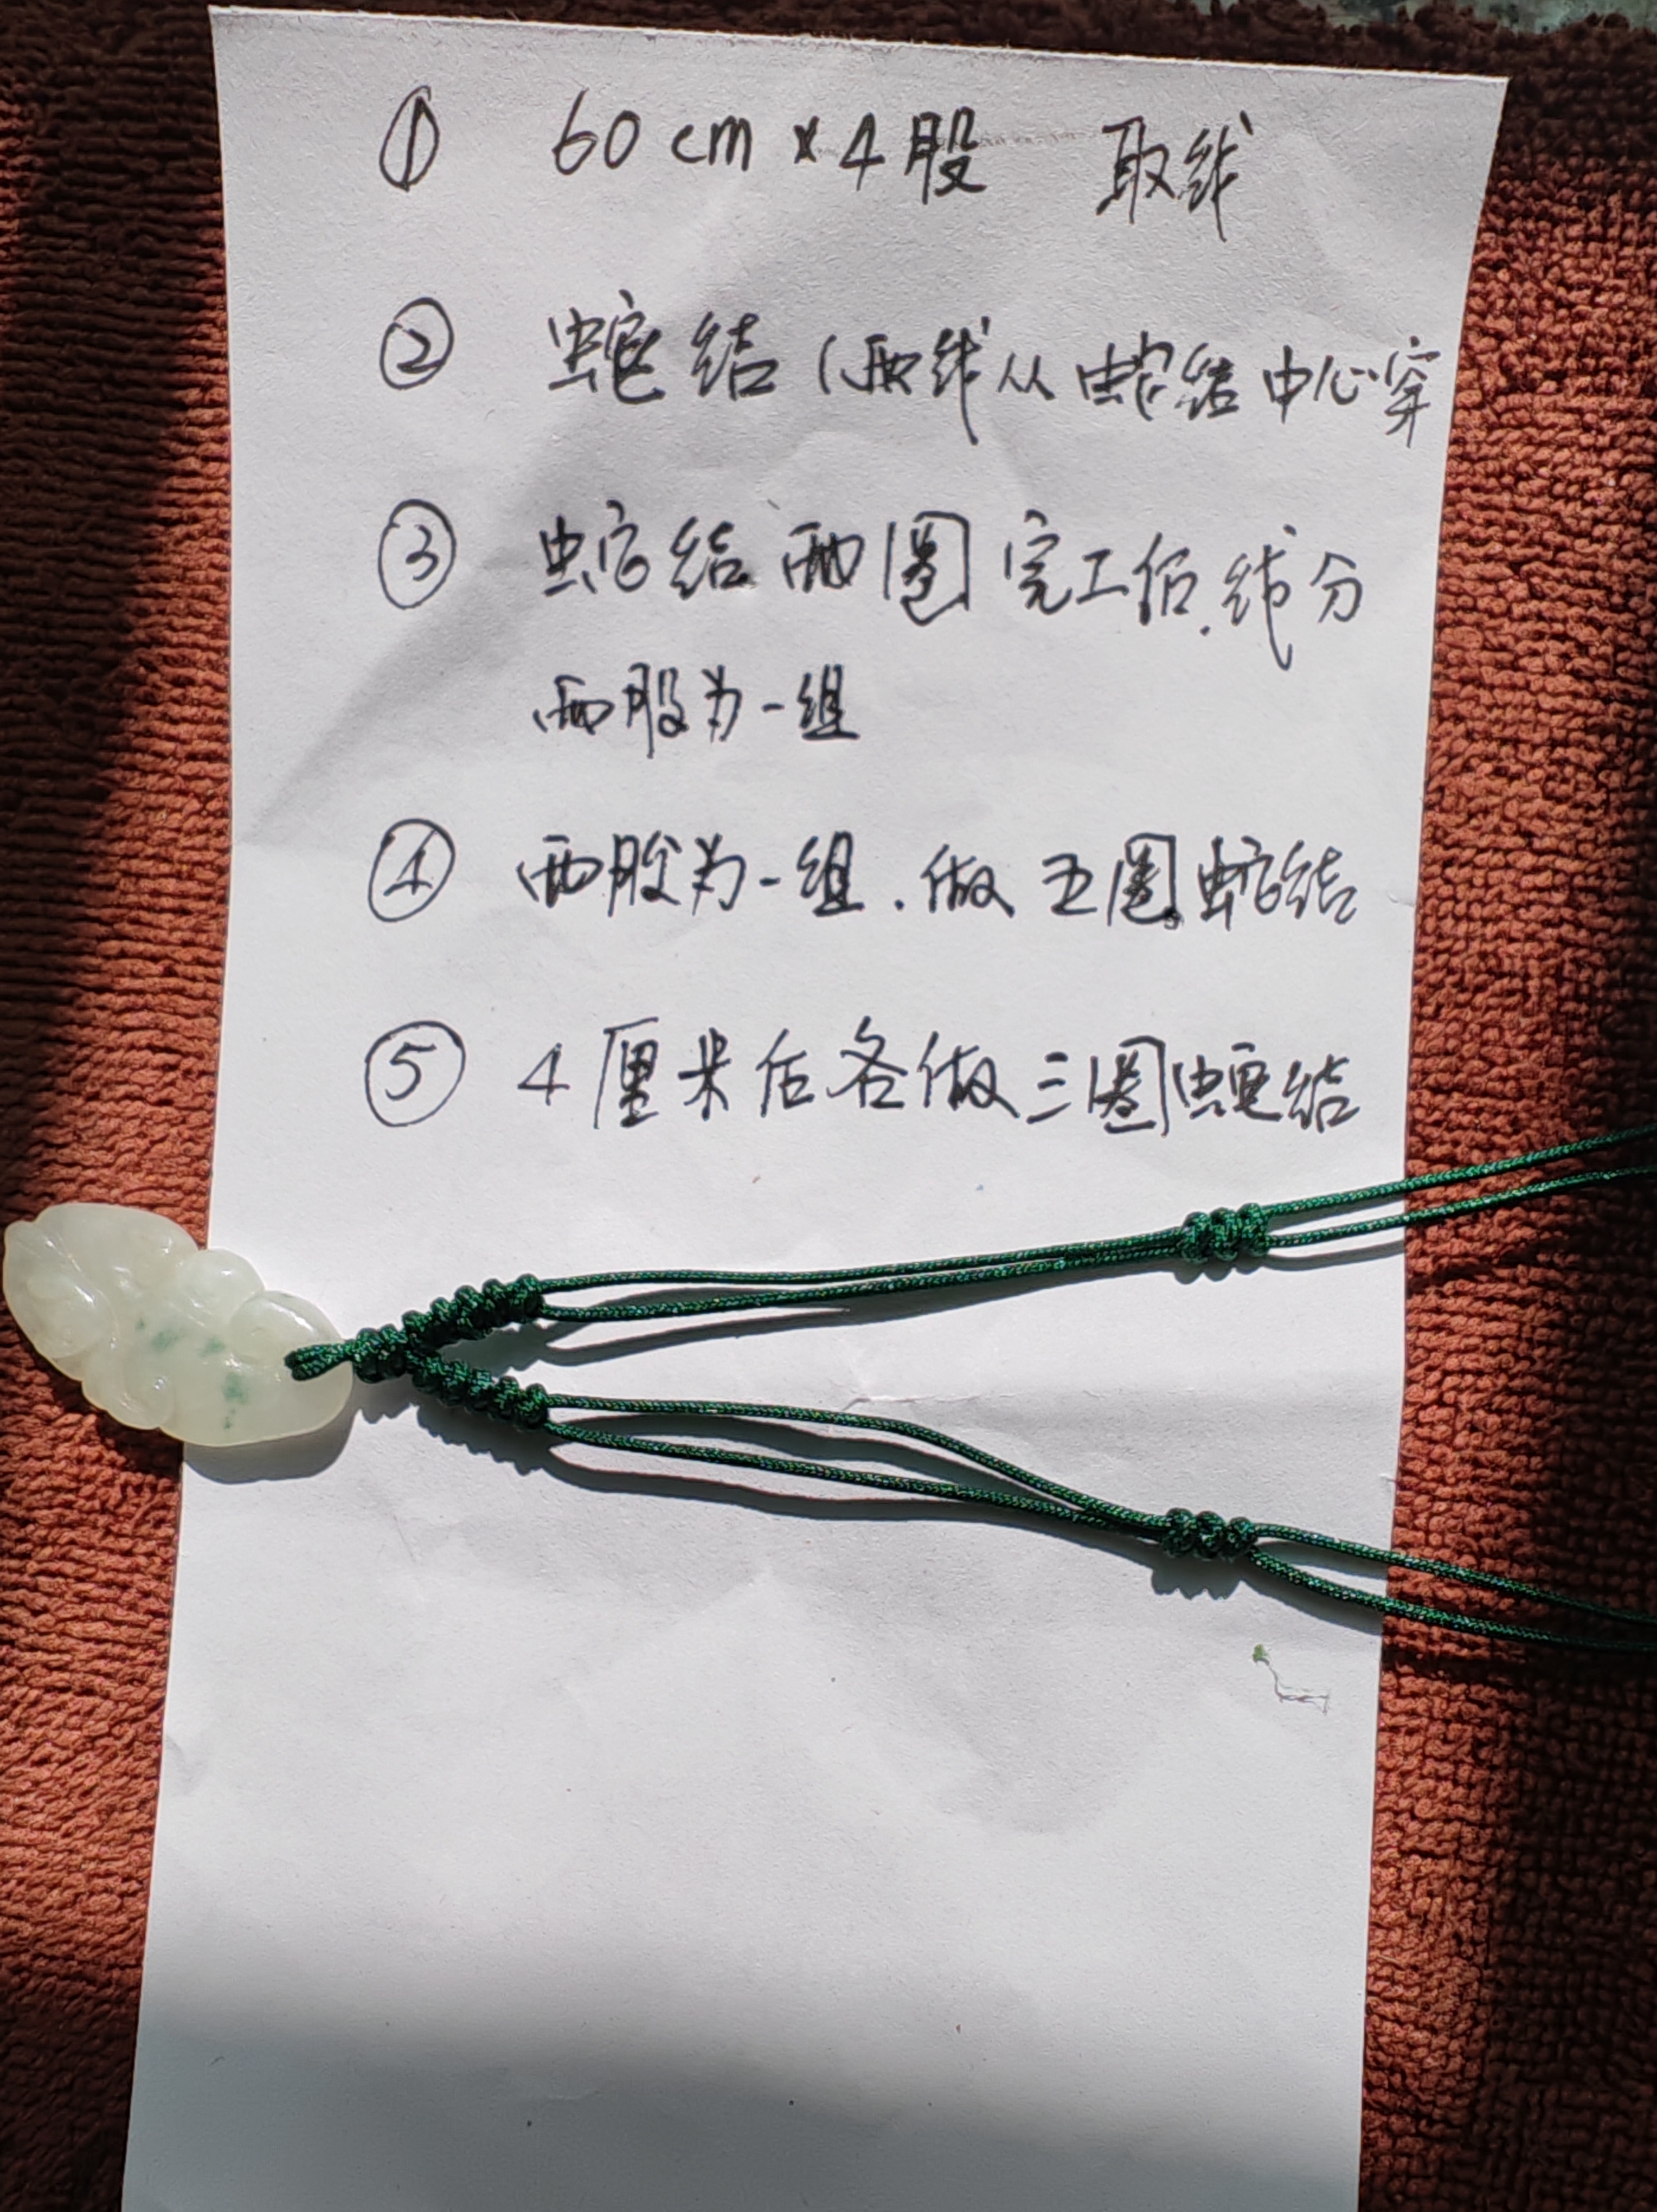 ① 60cm×4股 取线
② 蛇结(两线从蛇结中心穿
③ 蛇结两圈完工后.线分
两股为一组
④ 两股为一组.做五圈蛇结
⑤ 4厘米后各做三圈蛇结